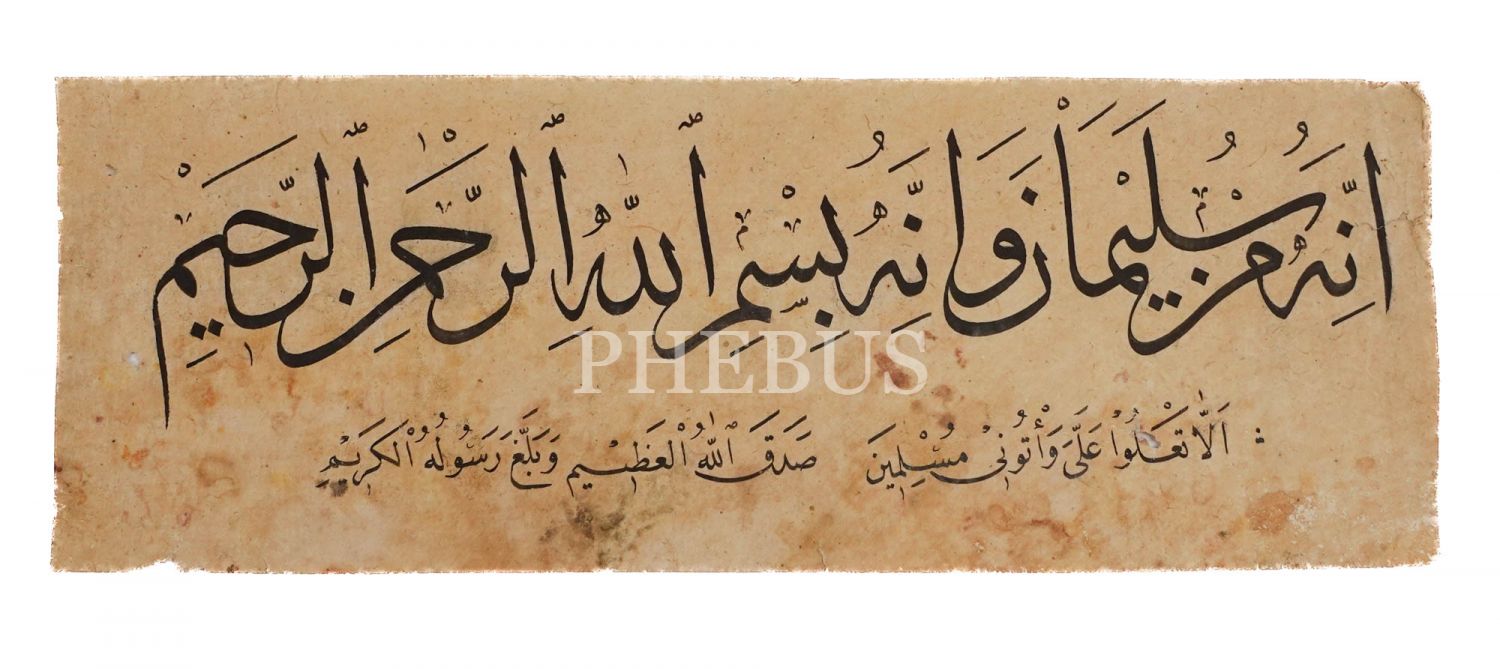 اِنَّهُ مِنْ سُلَيْمَانَ وَاِنَّهُ بِسْمِ اللّٰهِ الرَّحْمٰنِ الرَّحِيْمِ
PHEBUS
اَلَّا تَعْلُوْا عَلَيَّ وَأْتُونِيْ مُسْلِمِينَ صَدَقَ اللّٰهُ الْعَظِيْم وَبَلَّغَ رَسُولُهُ الْكَرِيْمِ